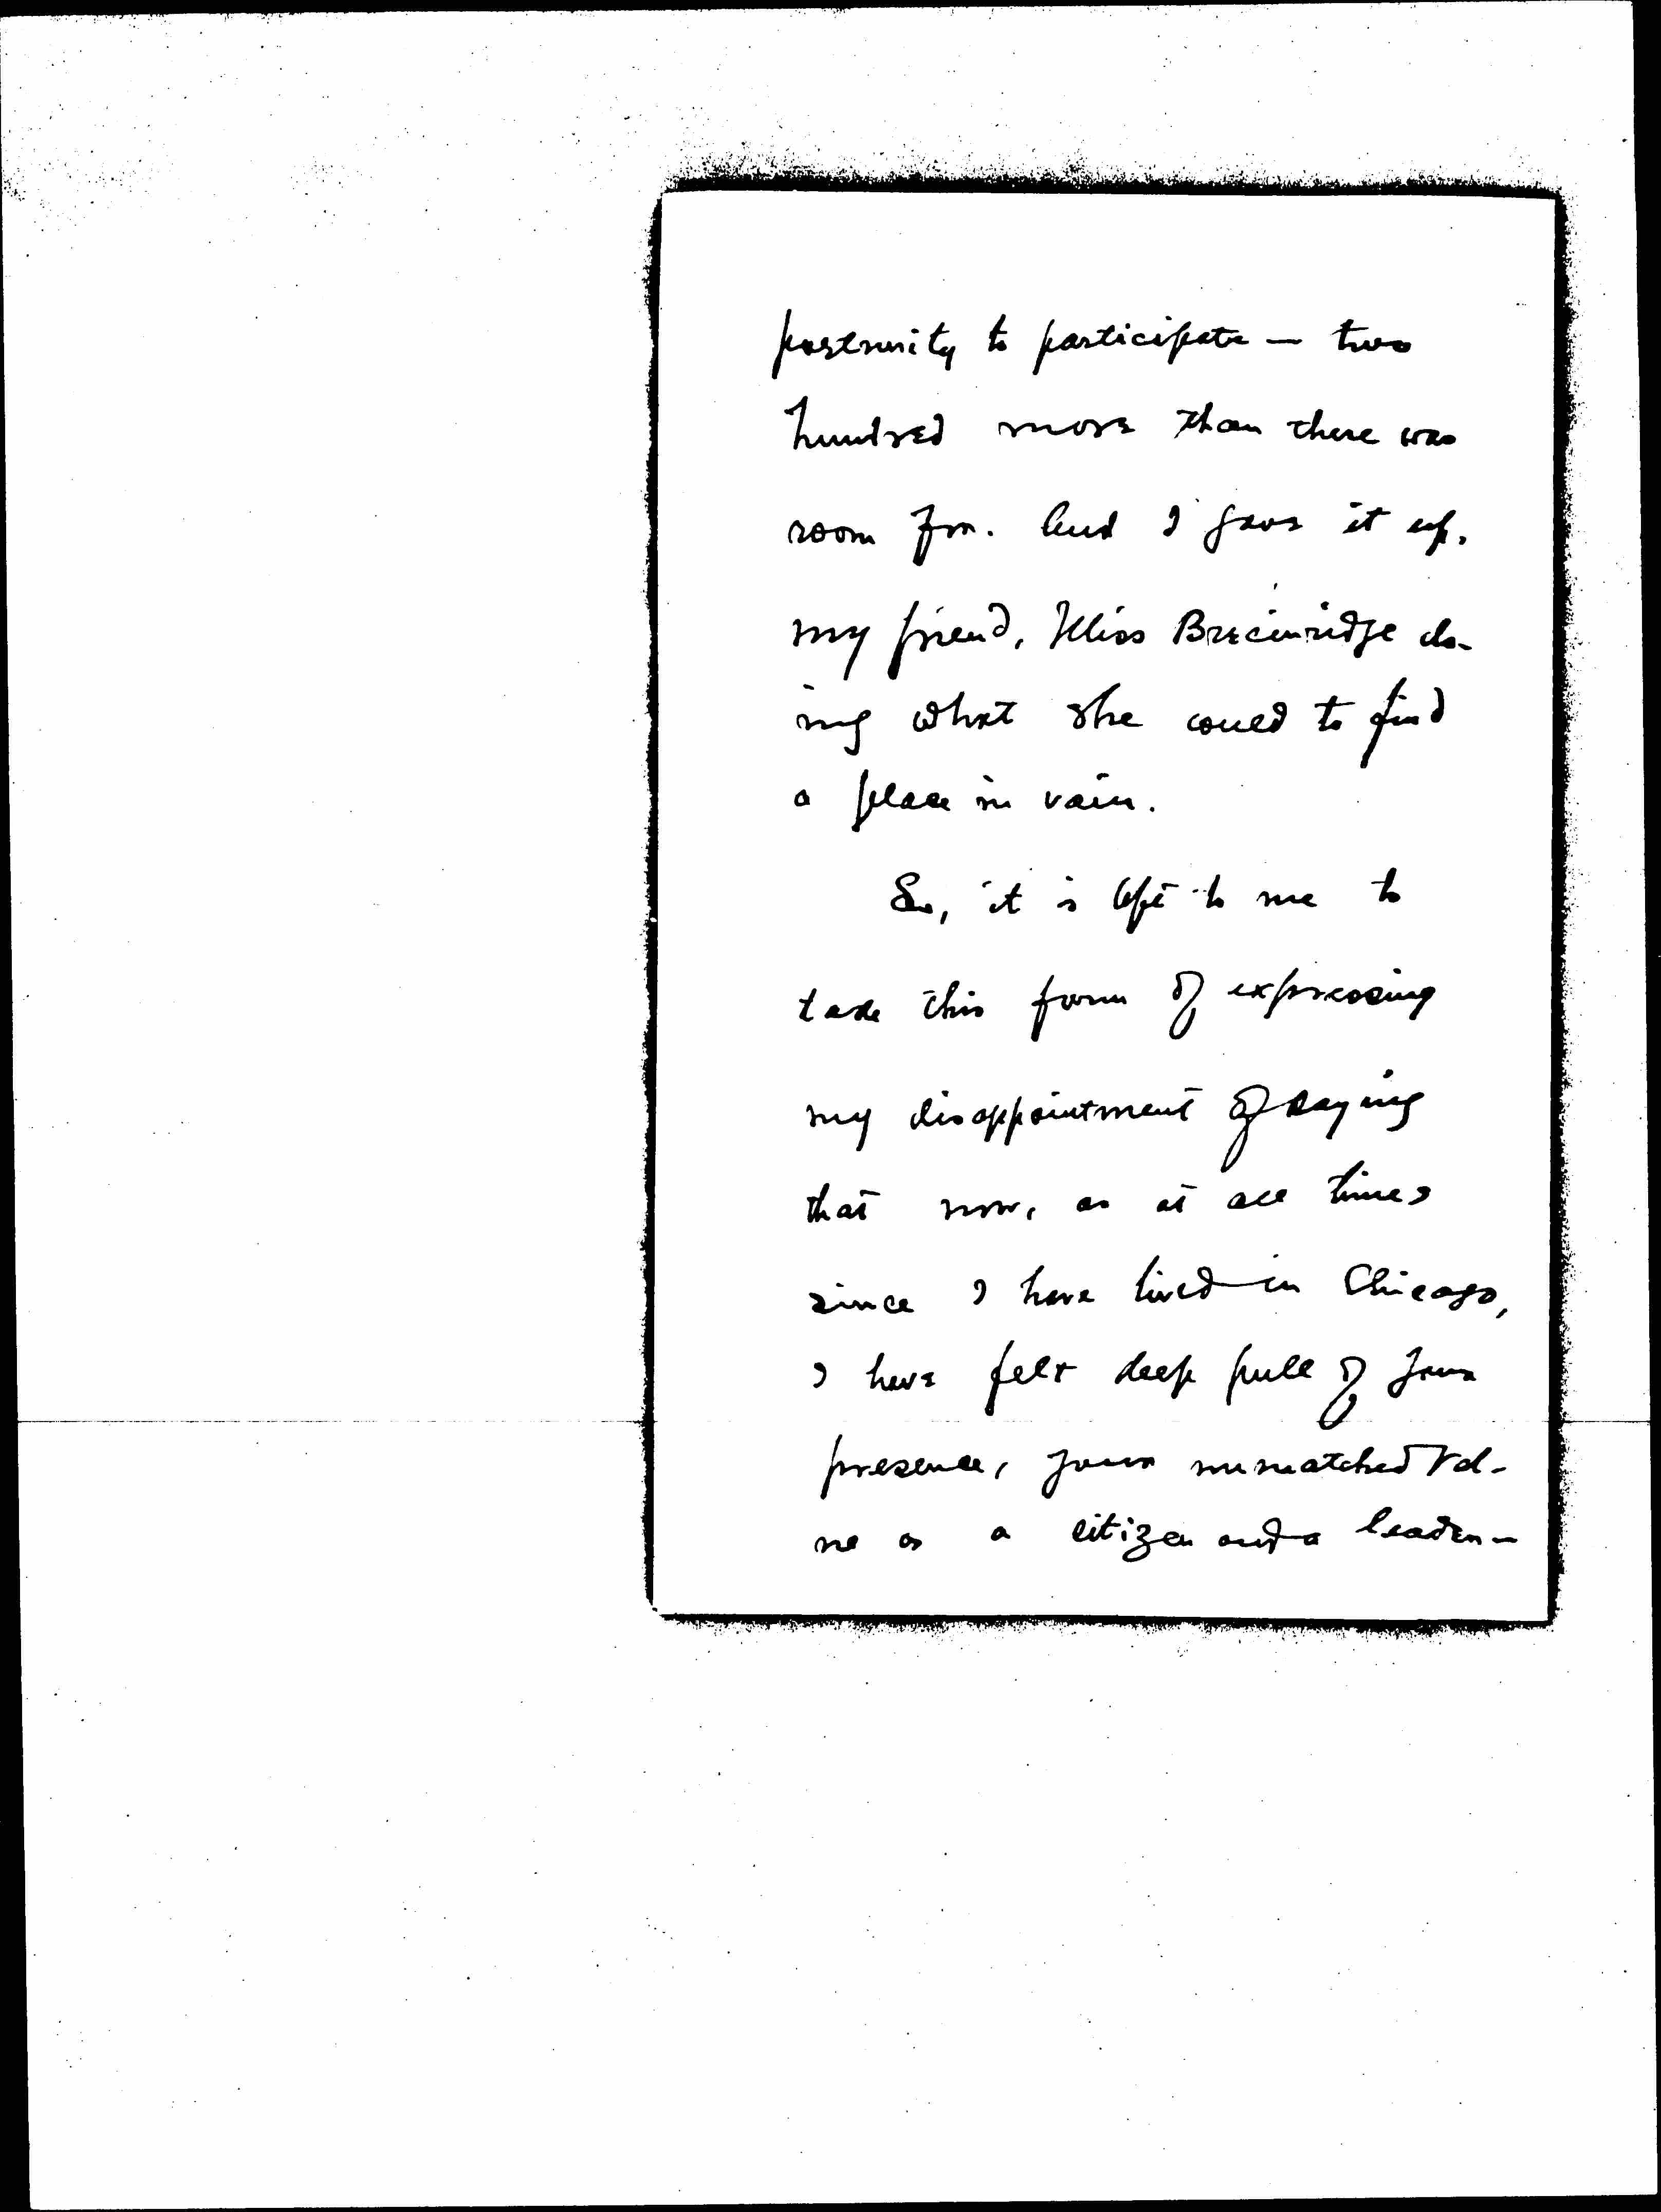 portunity to participate — two
hundred more than there was
room for. And I gave it up,
my friend, Miss Brecinridge do-
ing what she could to find
a place in vain.
So, it is left to me to
take this form of expressing
my disappointment of saying
that now, as at all times
since I have lived in Chicago,
I have felt deep pull of your
presence, your unmatched val-
ue as a citizen and a leader —